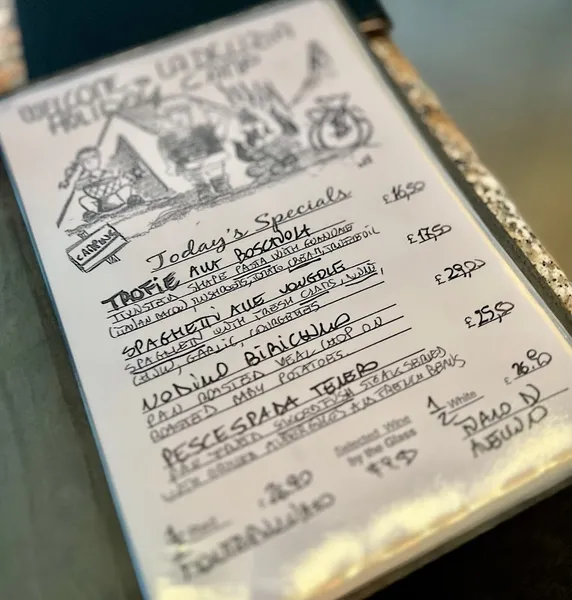 WELCOME TO LA DELIZIA
HOLIDAY CAMP
CAMPING
Today's Specials
TROFIE ALLA BOSCAIOLA £16,50
TWISTED SHAPE PASTA WITH GUANCIALE
(ITALIAN BACON), MUSHROOMS, TOMATO, CREAM, TRUFFLE OIL
SPAGHETTI ALLE VONGOLE £17,50
SPAGHETTI WITH FRESH CLAMS, WINE,
CHILLI, GARLIC, COURGETTES
NODINO BIRICHINO £29,00
PAN ROASTED VEAL CHOP ON
ROASTED MAY POTATOES
PESCESPADA TENERO £25,50
PAN FRIED SWORDFISH STEAK SERVED
WITH AUBERGINES AND FRENCH BEANS
1 Red £26.90
Selected Wine
by the Glass
2 White £26.90